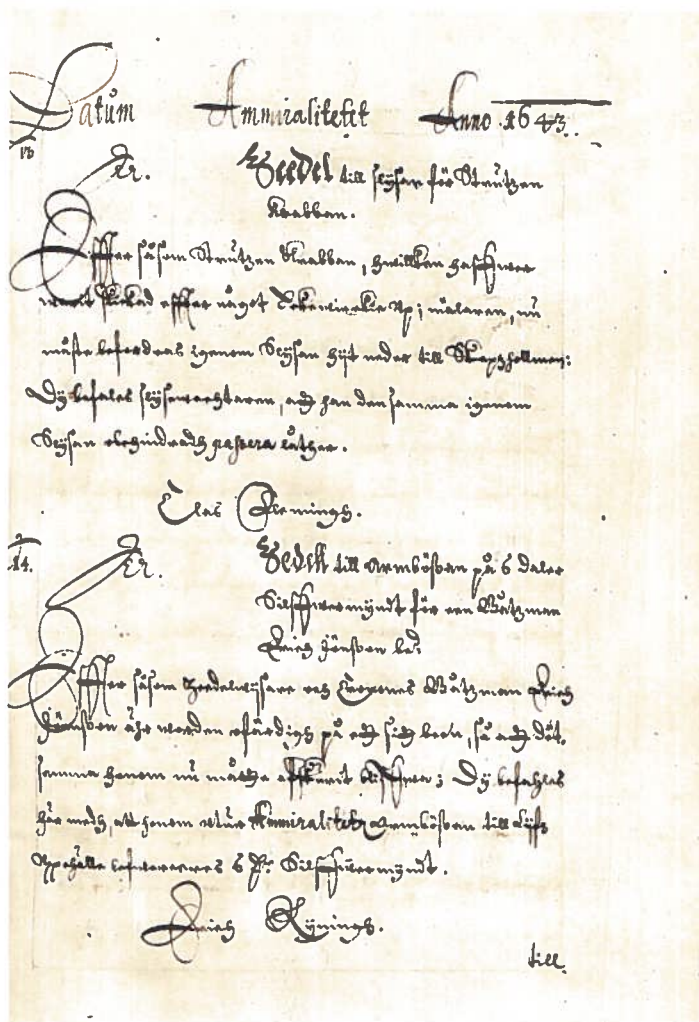 Datum Ammiralitetet Anno 1643.
13
Nr. Zedel till slÿsan för Strutzen
Krabban.
Effter såsom Strutzen Krabban, hwilken haffwer
warit skickad effter något Eekewirckie up i mälaren, nu
måste befordras igenom Slÿsan hijt neder till Skepzhollmen:
Dÿ befales slÿsewachtaren, att han den samma igenom
Slÿsan ohehindradh passera låther.
Clas Flemingh.
14.
Nr. Zedell till Armbößan på 6 daler
Silffwermÿndt för een Båtzman
Erich Jönßon be:d
Effter såsom Zeedelwijsare och Cronones Båtzman Erich
Jönßon ähr worden ofärdigh på ett sitt been, så att det
samma honom nu måtte affskurit bliffwa; Dÿ befahles
här medh, att honom uthur Ammiralitetz Armbößan till Lijfz
Uppehälle lefwereres 6 D:r Silffwermÿndt.
Erich Rÿningh.
till